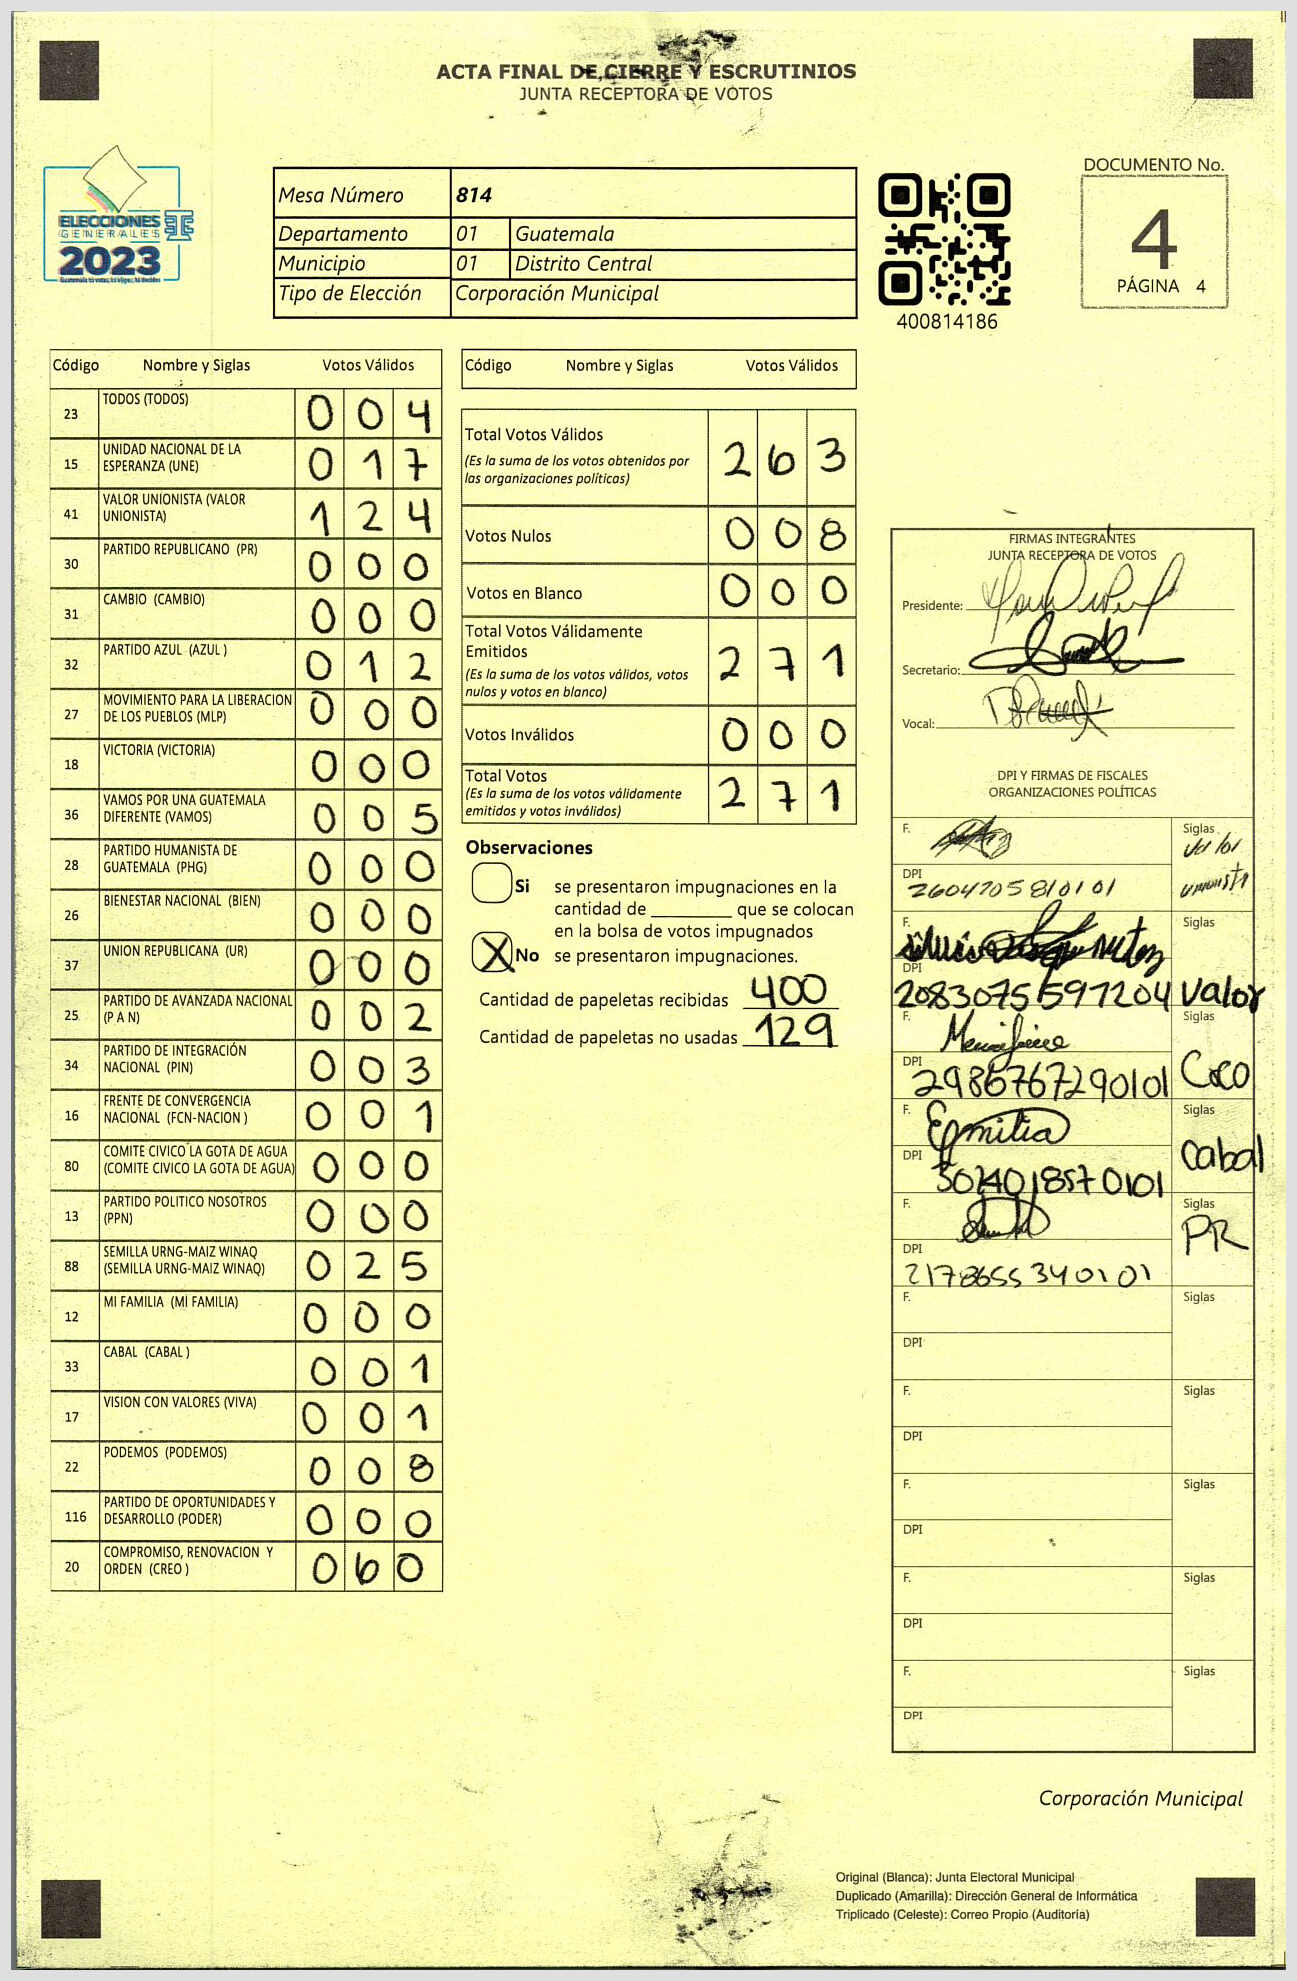 ACTA FINAL DE CIERRE Y ESCRUTINIOS
JUNTA RECEPTORA DE VOTOS
ELECCIONES
GENERALES
2023
Mesa Número 814
Departamento 01 Guatemala
Municipio 01 Distrito Central
Tipo de Elección Corporación Municipal
400814186
DOCUMENTO No.
4
PÁGINA 4
Código Nombre y Siglas Votos Válidos
23 TODOS (TODOS) 0 0 4
15 UNIDAD NACIONAL DE LA
ESPERANZA (UNE) 0 1 7
41 VALOR UNIONISTA (VALOR
UNIONISTA) 1 2 4
30 PARTIDO REPUBLICANO (PR) 0 0 0
31 CAMBIO (CAMBIO) 0 0 0
32 PARTIDO AZUL (AZUL ) 0 1 2
27 MOVIMIENTO PARA LA LIBERACION
DE LOS PUEBLOS (MLP) 0 0 0
18 VICTORIA (VICTORIA) 0 0 0
36 VAMOS POR UNA GUATEMALA
DIFERENTE (VAMOS) 0 0 5
28 PARTIDO HUMANISTA DE
GUATEMALA (PHG) 0 0 0
26 BIENESTAR NACIONAL (BIEN) 0 0 0
37 UNION REPUBLICANA (UR) 0 0 0
25 PARTIDO DE AVANZADA NACIONAL
(P A N) 0 0 2
34 PARTIDO DE INTEGRACIÓN
NACIONAL (PIN) 0 0 3
16 FRENTE DE CONVERGENCIA
NACIONAL (FCN-NACION ) 0 0 1
80 COMITE CIVICO LA GOTA DE AGUA
(COMITE CIVICO LA GOTA DE AGUA) 0 0 0
13 PARTIDO POLITICO NOSOTROS
(PPN) 0 0 0
88 SEMILLA URNG-MAIZ WINAQ
(SEMILLA URNG-MAIZ WINAQ) 0 2 5
12 MI FAMILIA (MI FAMILIA) 0 0 0
33 CABAL (CABAL ) 0 0 1
17 VISION CON VALORES (VIVA) 0 0 1
22 PODEMOS (PODEMOS) 0 0 8
116 PARTIDO DE OPORTUNIDADES Y
DESARROLLO (PODER) 0 0 0
20 COMPROMISO, RENOVACION Y
ORDEN (CREO ) 0 6 0
Código Nombre y Siglas Votos Válidos
Total Votos Válidos 2 6 3
(Es la suma de los votos obtenidos por
las organizaciones políticas)
Votos Nulos 0 0 8
Votos en Blanco 0 0 0
Total Votos Válidamente
Emitidos 2 7 1
(Es la suma de los votos válidos, votos
nulos y votos en blanco)
Votos Inválidos 0 0 0
Total Votos 2 7 1
(Es la suma de los votos válidamente
emitidos y votos inválidos)
Observaciones
Si se presentaron impugnaciones en la
cantidad de ________ que se colocan
en la bolsa de votos impugnados
X No se presentaron impugnaciones.
Cantidad de papeletas recibidas 400
Cantidad de papeletas no usadas 129
FIRMAS INTEGRANTES
JUNTA RECEPTORA DE VOTOS
Presidente:
Secretario:
Vocal:
DPI Y FIRMAS DE FISCALES
ORGANIZACIONES POLÍTICAS
F. Siglas
Valor
DPI
2604705810101 unionista
F. Siglas
DPI
2083075591204 Valor
F. Siglas
DPI
2986767290101 CoCo
F. Emilia Siglas
DPI
3014018570101 Cabal
F. Siglas
PR
DPI
2178655340101
F. Siglas
DPI
F. Siglas
DPI
F. Siglas
DPI
F. Siglas
DPI
F. Siglas
DPI
Corporación Municipal
Original (Blanca): Junta Electoral Municipal
Duplicado (Amarilla): Dirección General de Informática
Triplicado (Celeste): Correo Propio (Auditoría)